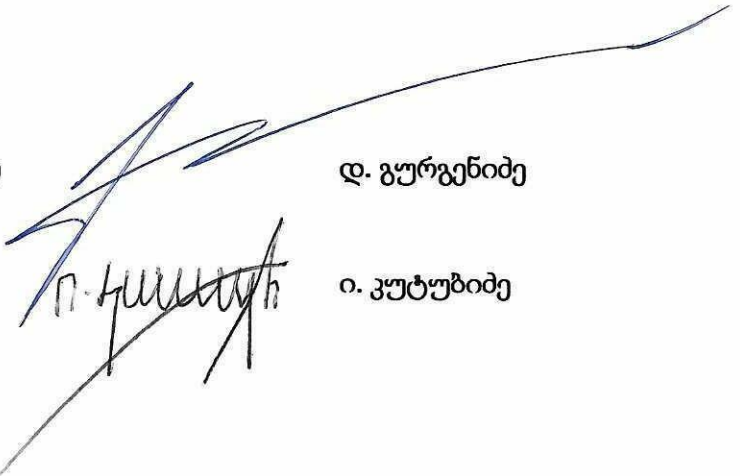 დ. გურგენიძე
ი. კუტუბიძე